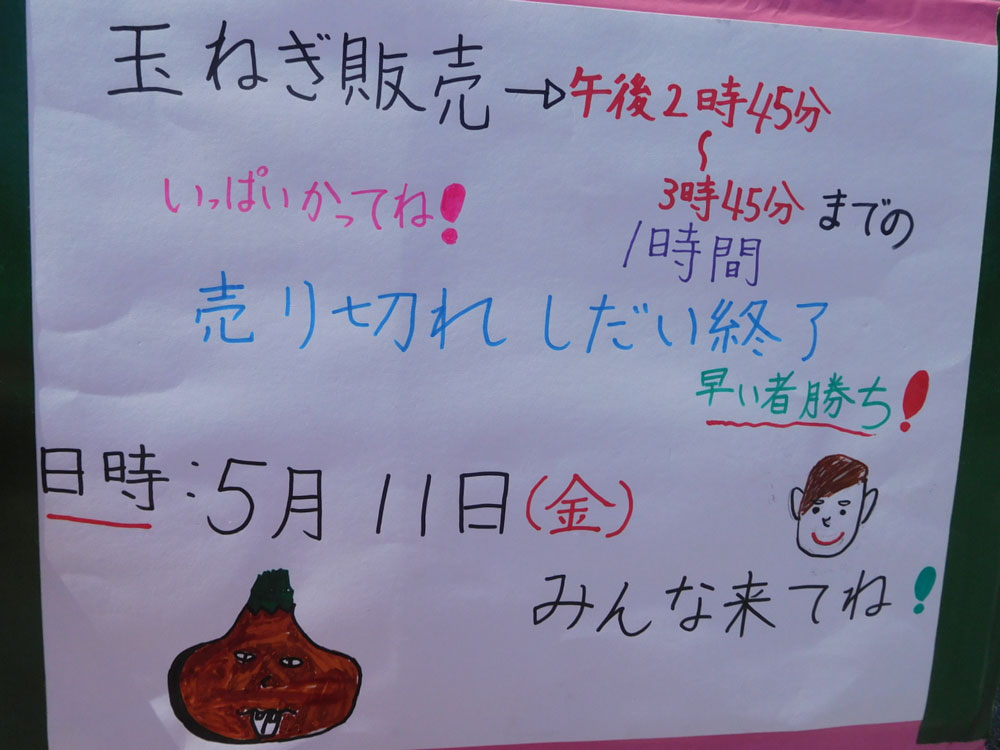 玉ねぎ販売→午後2時45分
〜
3時45分までの
1時間
いっぱいかってね!
売り切れしだい終了
早い者勝ち!
日時:5月11日(金)
みんな来てね!